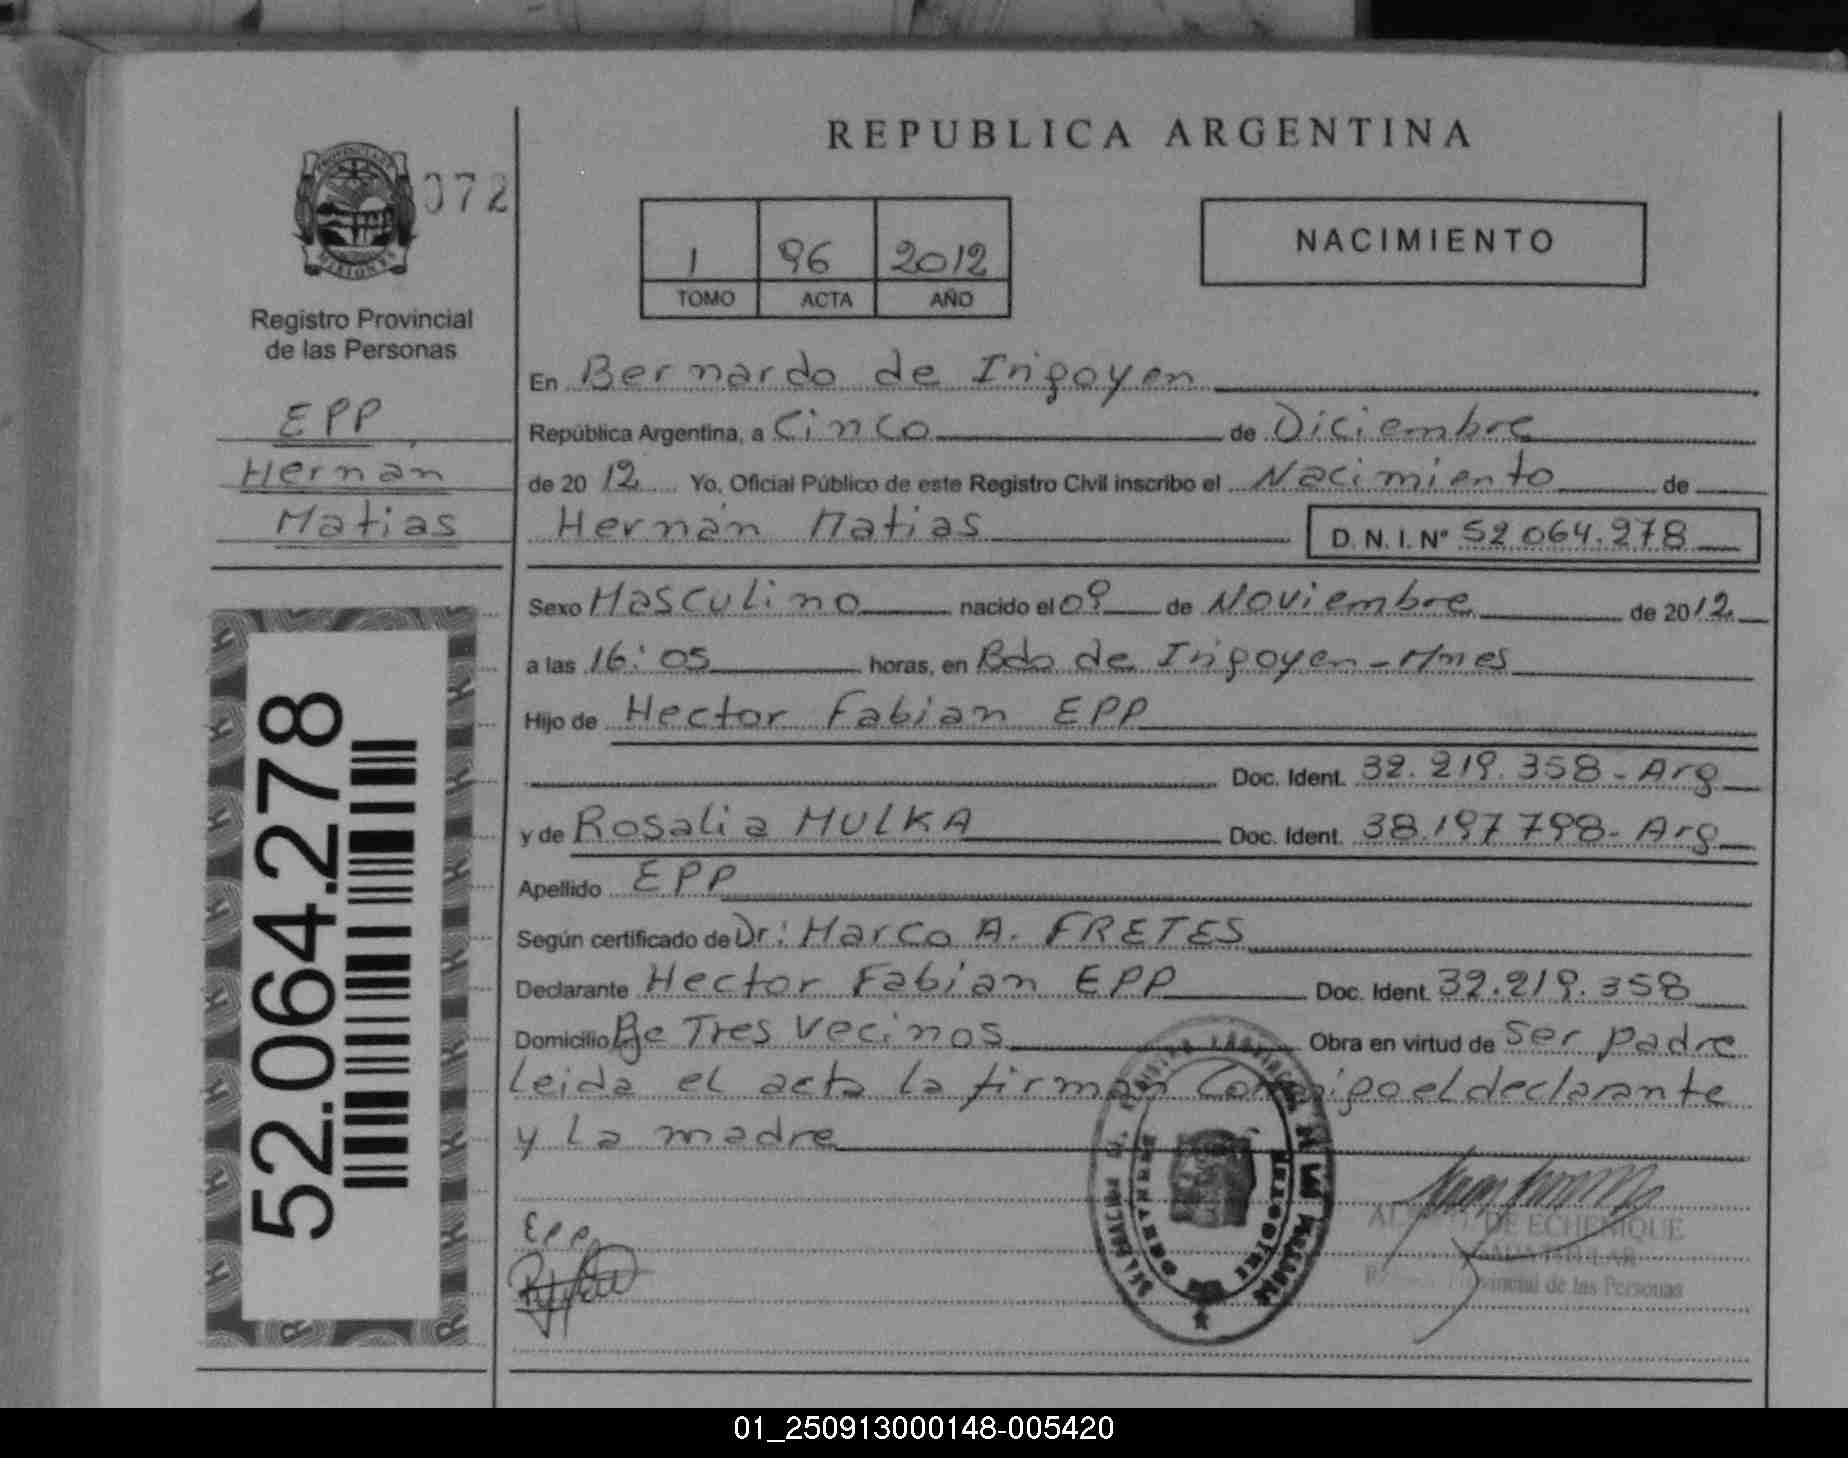 REPUBLICA ARGENTINA
PROVINCIA DE
MISIONES
072
NACIMIENTO
1 96 2012
TOMO ACTA AÑO
Registro Provincial
de las Personas
EPP
Hernán
Matias
52.064.278
En Bernardo de Irigoyen
República Argentina, a Cinco de Diciembre
de 2012 Yo, Oficial Público de este Registro Civil inscribo el Nacimiento de
Hernán Matias D. N. I. Nº 52.064.278
Sexo Masculino nacido el 09 de Noviembre de 2012
a las 16:05 horas, en Bdo de Irigoyen - Mnes
Hijo de Hector Fabian EPP
Doc. Ident. 32.219.358 - Arg
y de Rosalia MULKA Doc. Ident. 38.197.798 - Arg
Apellido EPP
Según certificado de Dr: Marco A. FRETES
Declarante Hector Fabian EPP Doc. Ident. 32.219.358
Domicilio Pje Tres Vecinos Obra en virtud de ser padre
leida el acta la firman conmigo el declarante
y la madre
Epp
DE ECHENIQUE
Provincial de las Personas
01_250913000148-005420